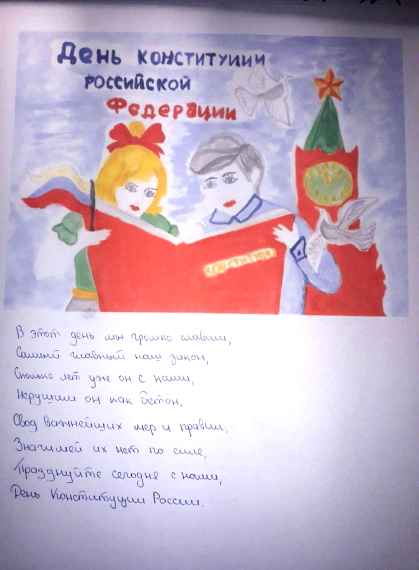 День конституции
российской
Федерации
конституция
В этот день мы громко славим,
Самый главный наш закон,
Сколько лет уже он с нами,
Нерушим он как бетон.
Свод важнейших мер и правил,
Значимей их нет по силе,
Празднуйте сегодня с нами,
День Конституции России.